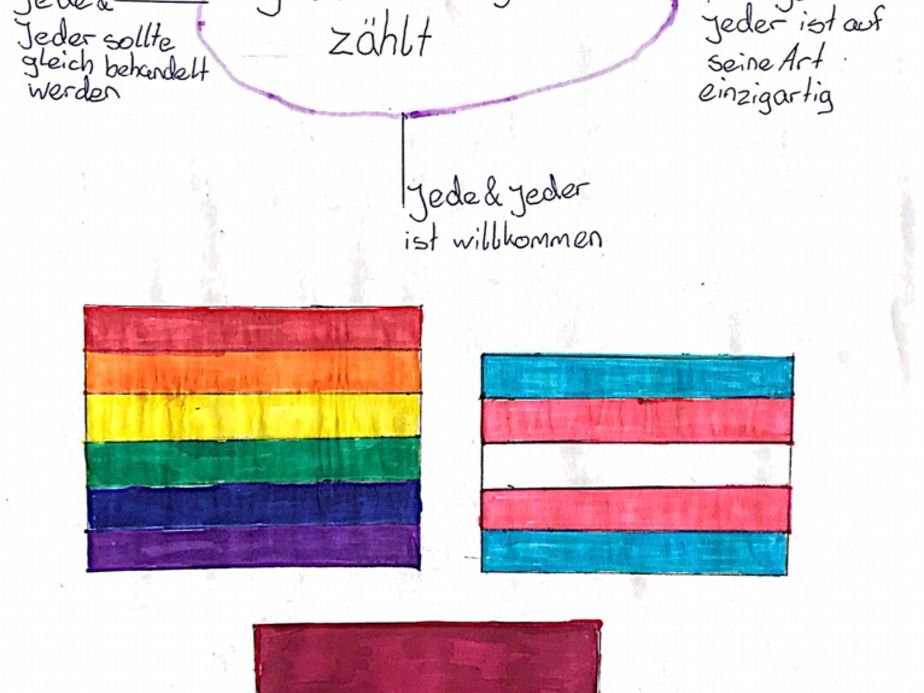 Jeder sollte
gleich behandelt
werden
zählt
jeder ist auf
seine Art
einzigartig
Jede & Jeder
ist willkommen